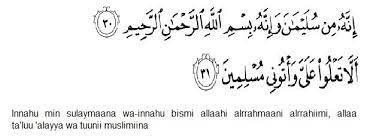 إِنَّهُۥ مِن سُلَيْمَـٰنَ وَإِنَّهُۥ بِسْمِ ٱللَّهِ ٱلرَّحْمَـٰنِ ٱلرَّحِيمِ ٣٠
أَلَّا تَعْلُوا۟ عَلَىَّ وَأْتُونِى مُسْلِمِينَ ٣١
Innahu min sulaymaana wa-innahu bismi allaahi alrrahmaani alrrahiimi, allaa
ta'luu 'alayya wa tuunii muslimiina